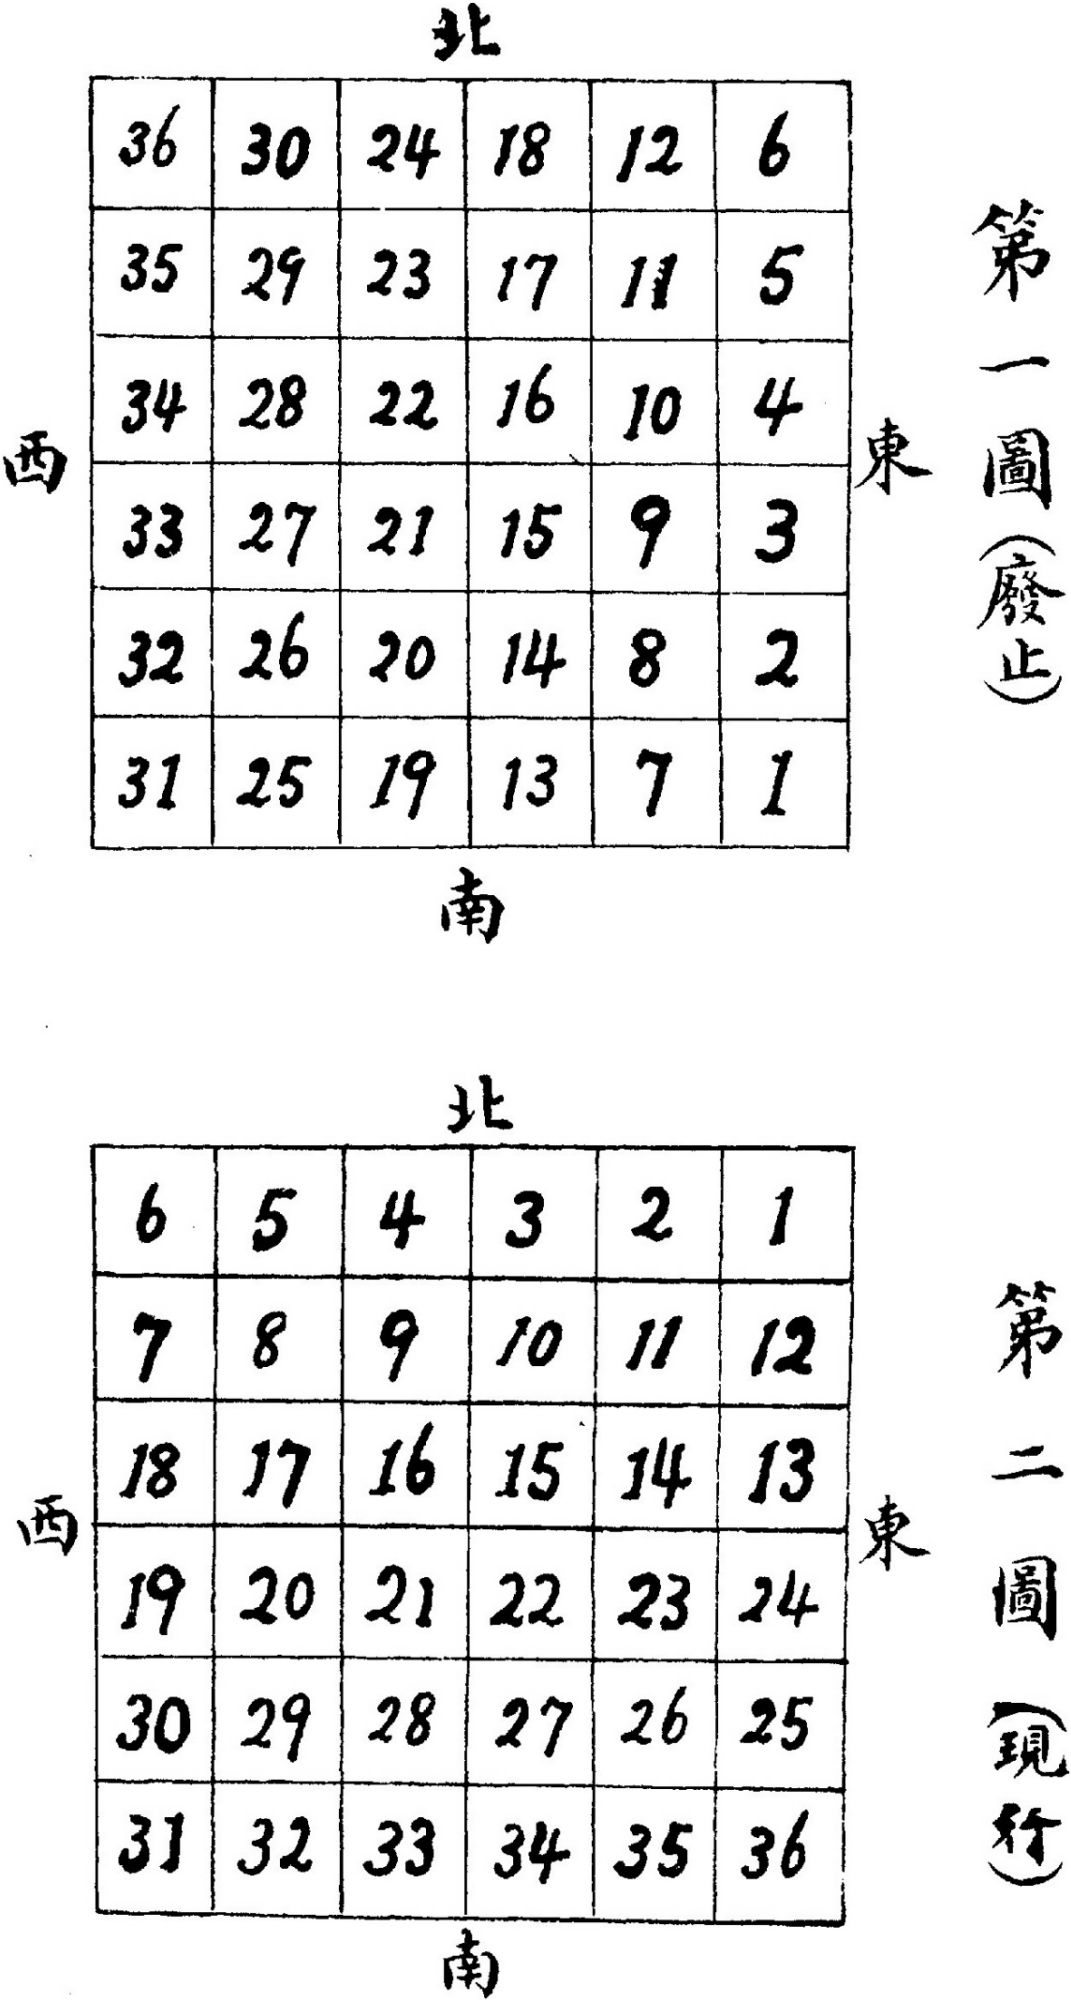 北
36 30 24 18 12 6
35 29 23 17 11 5
34 28 22 16 10 4
33 27 21 15 9 3
32 26 20 14 8 2
31 25 19 13 7 1
西
東
南
第一圖(廢止)
北
6 5 4 3 2 1
7 8 9 10 11 12
18 17 16 15 14 13
19 20 21 22 23 24
30 29 28 27 26 25
31 32 33 34 35 36
西
東
南
第二圖(現行)